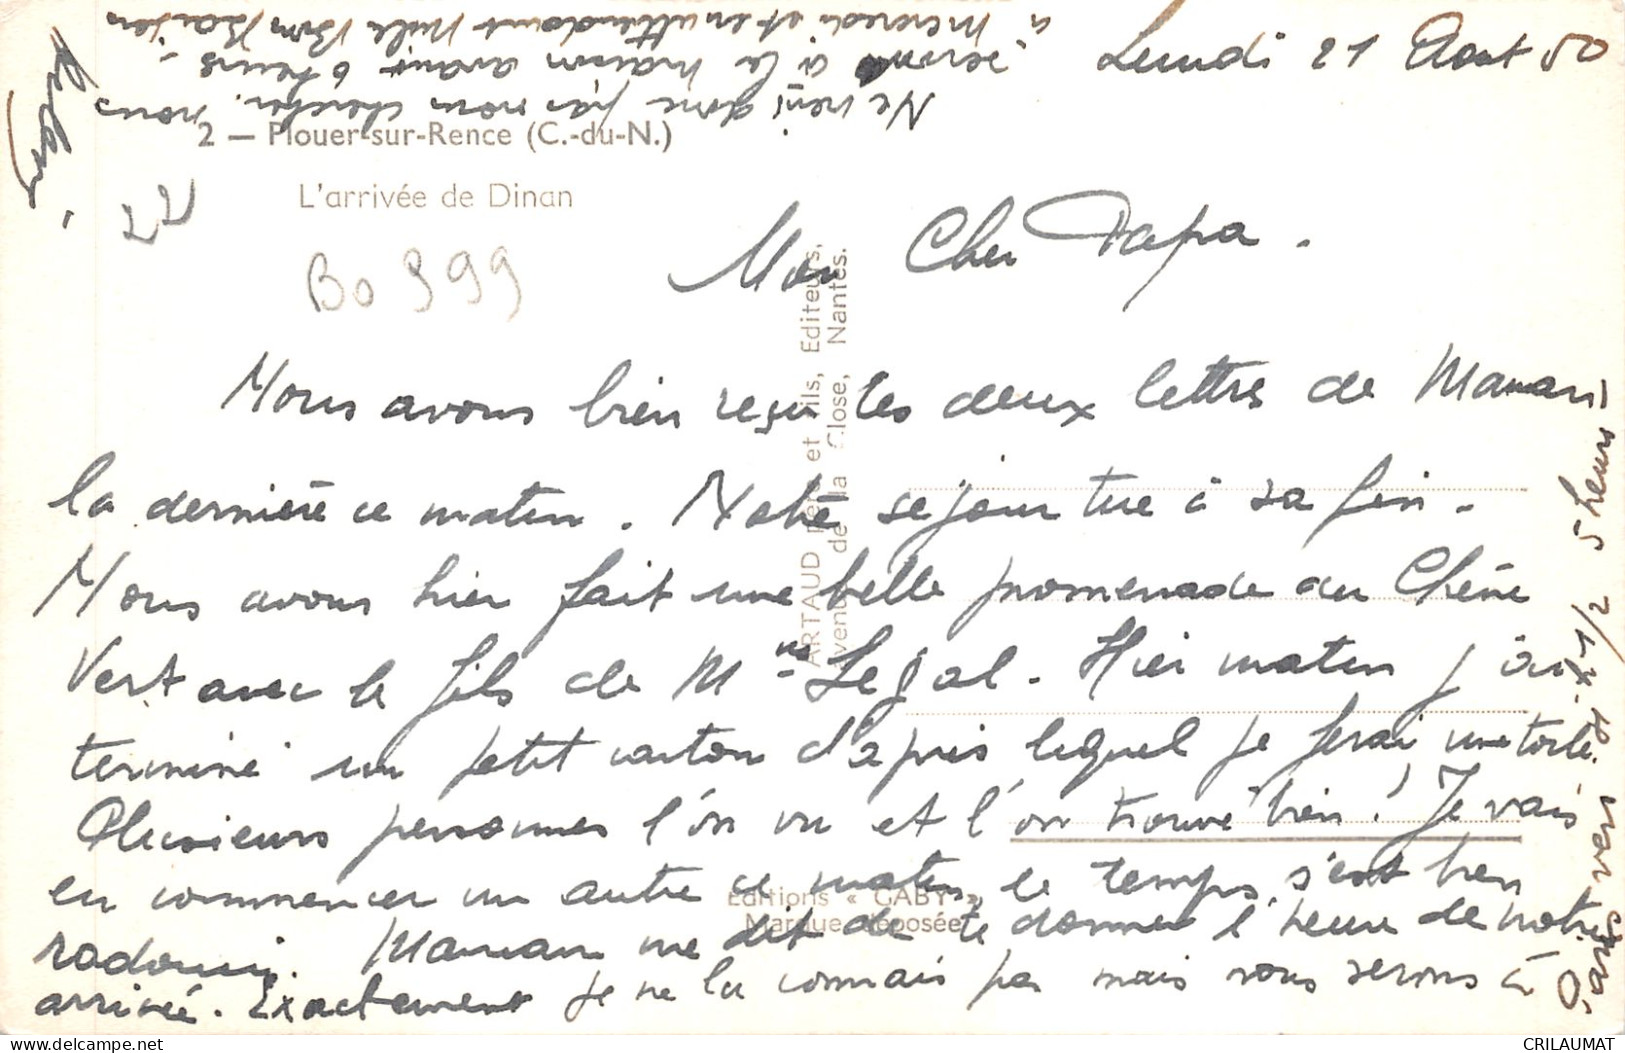 Lundi 21 Aout 50
2 — Plouer-sur-Rence (C.-du-N.)
L'arrivée de Dinan
22
Bo 999
Mon Cher Papa.
Nous avons bien reçu les deux lettres de Maman
la dernière ce matin. Notre séjour tire à sa fin.
Nous avons hier fait une belle promenade au Chêne
Vert avec le fils de Mme Legal. Hier matin j'ai
terminé un petit carton d'après lequel je ferai une toile.
Plusieurs personnes l'on vu et l'on trouvé bien! Je vais
en commencer un autre ce matin, le temps s'est bien
radouci. Maman me dit de te donner l'heure de notre
arrivée. Exactement je ne la connais pas mais nous serons à
Paris vers 4 h 1/2 5 heures
Ne vient donc pas nous chercher. nous
serons à la maison avant 6 heures -
à Mercredi et en attendant Mille Bon Baisers
ARTAUD père et fils, Editeurs,
Avenue de la Close, Nantes.
Editions « GABY »
Marque déposée
CRILAUMAT